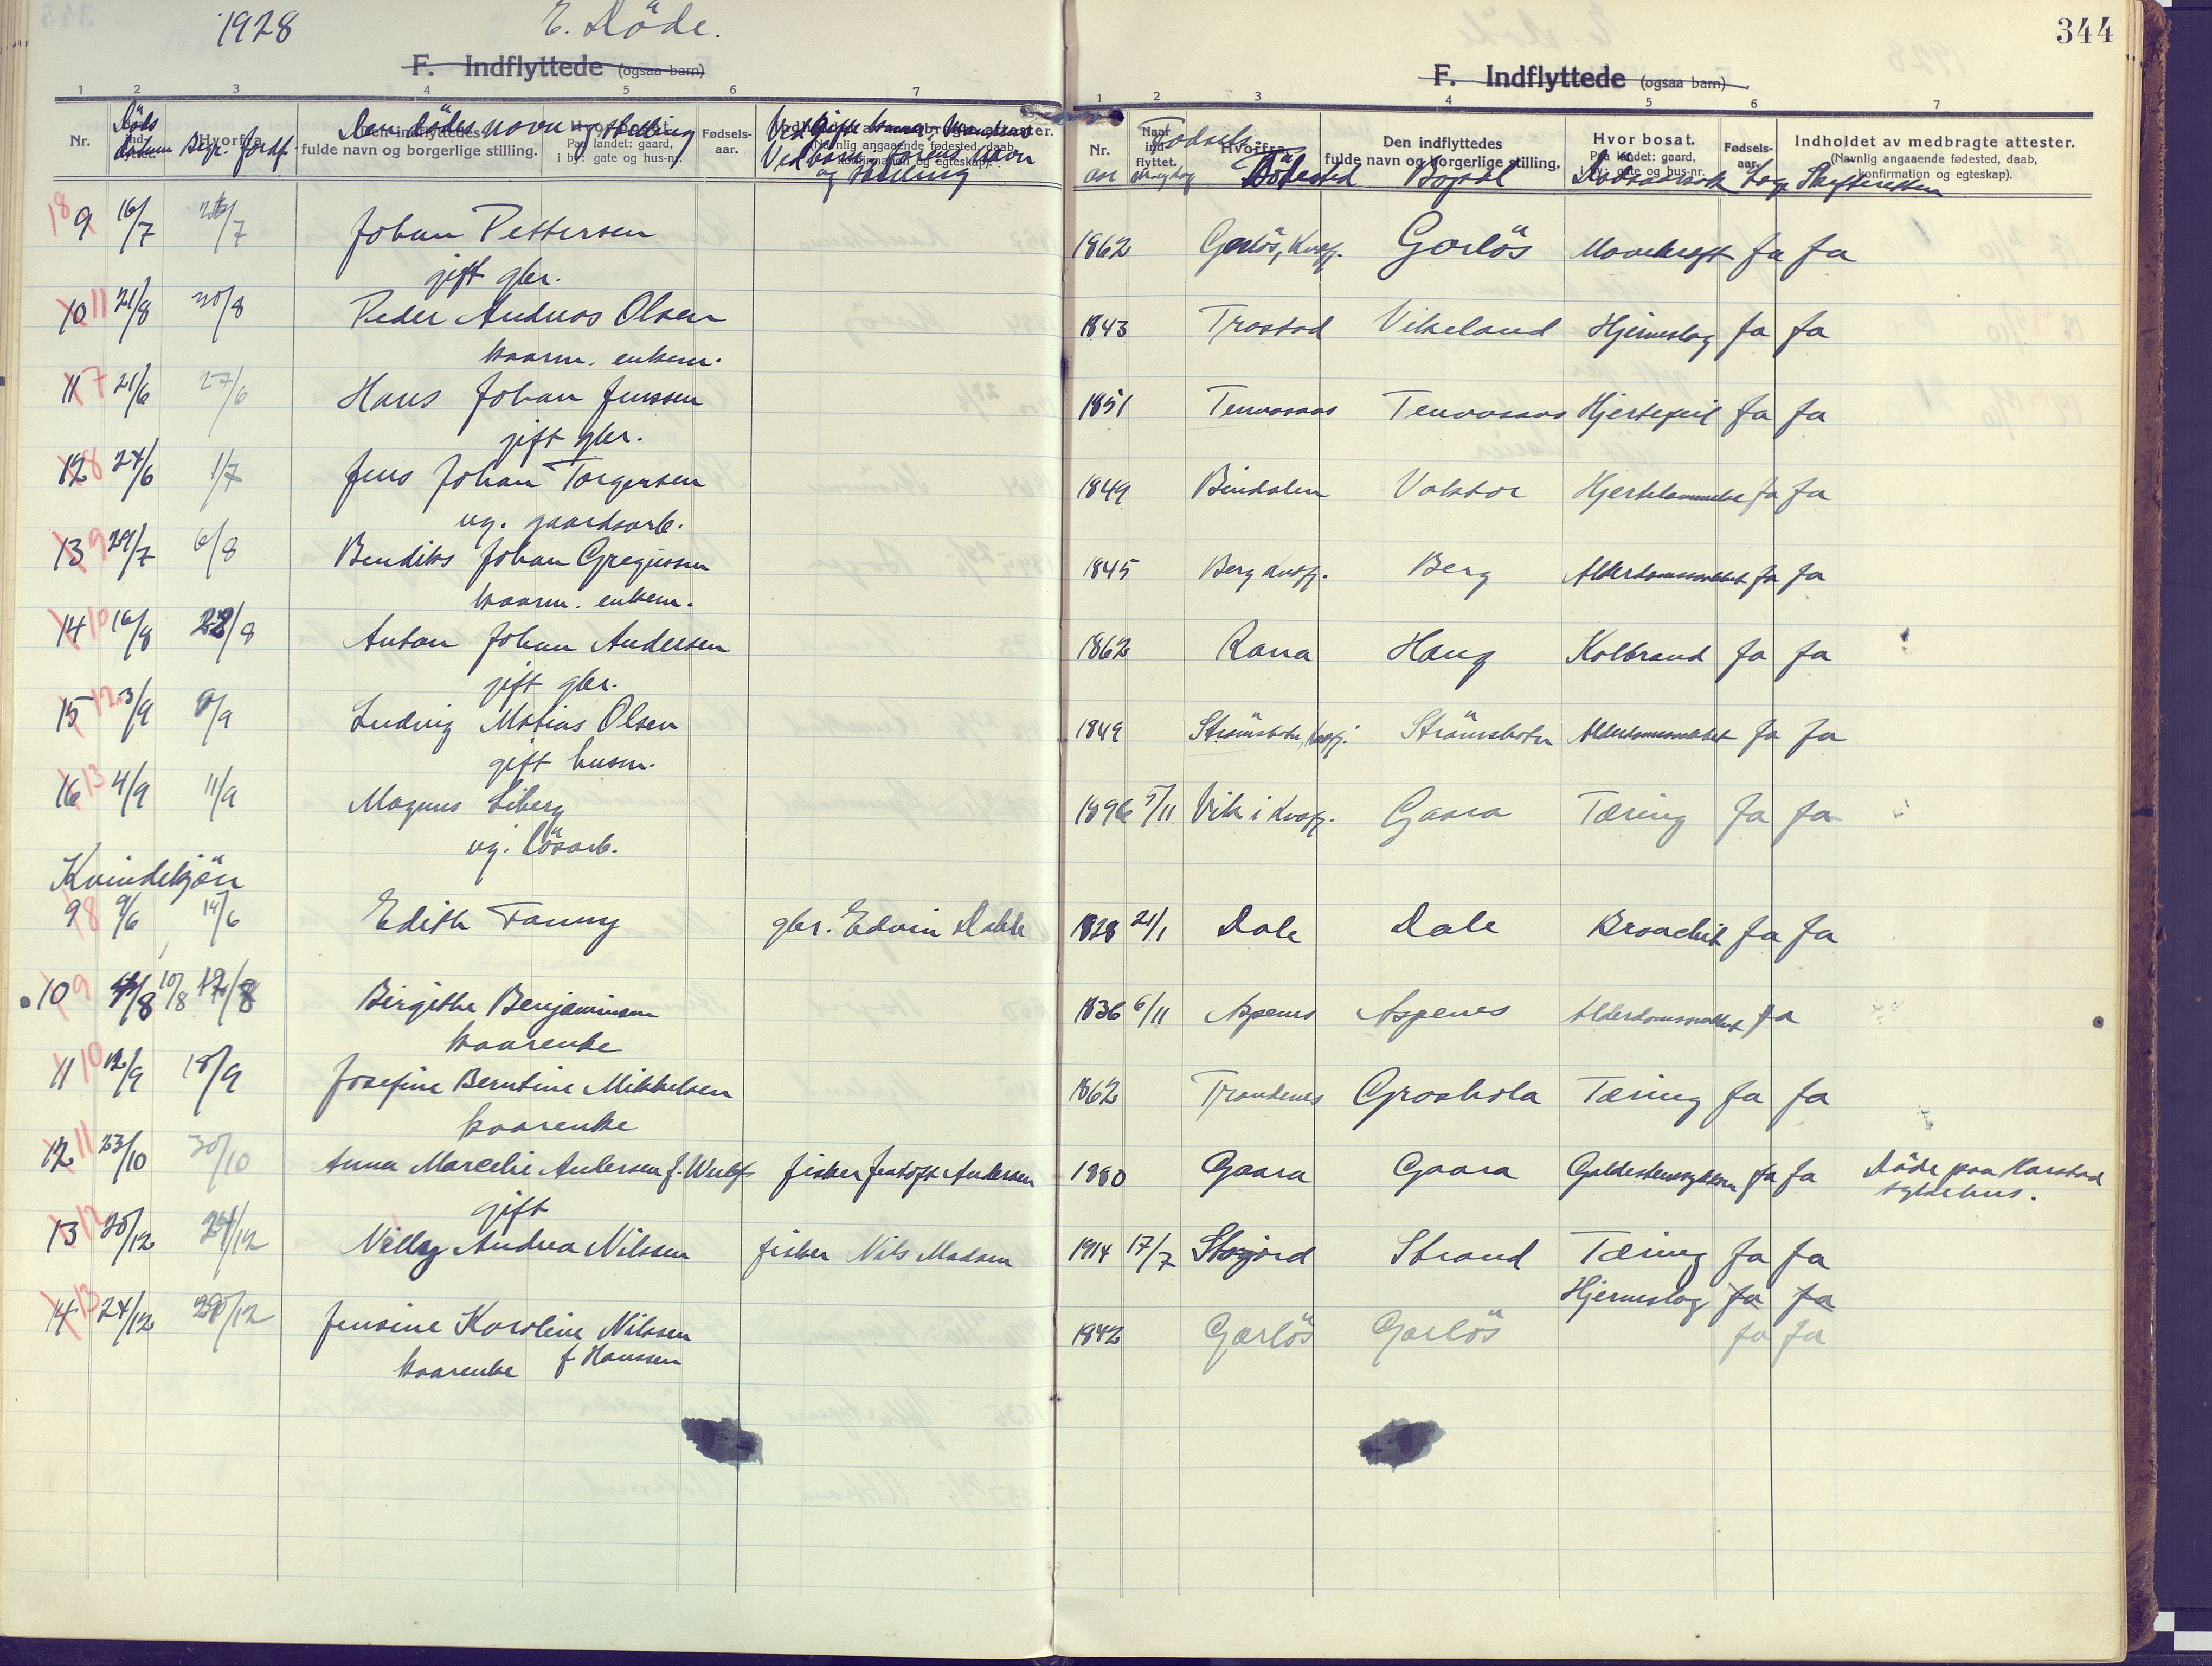 1928 E. Döde. 344
F. Indflyttede (ogsaa barn)
1 2 3 4 5 6 7
Nr. Döds datum Begr. Jordf. Den dödes navn og stilling
fulde navn og borgerlige stilling. Fødsels-aar. Ved barn, farens navn og stilling
9 16/7 /7 Johan Pettersen
gift gbr.
10 11 21/8 30/8 Peder Andreas Olsen
kaarm. enkem.
11 7 21/6 27/6 Hans Johan Jenssen
gift gbr.
12 8 24/6 1/7 Jens Johan Torgersen
ug. gaardsarb.
13 9 29/7 6/8 Bendiks Johan Gregussen
kaarm. enkem.
14 10 16/8 22/8 Anton Johan Andersen
gift gbr.
15 12 3/9 9/9 Ludvig Matias Olsen
gift husm.
16 13 4/9 11/9 Magnus Liberg
ug. lösarb.
Kvindekjön
9 8 9/6 14/6 Edith Fanny gbr. Edvin Dahle
10 9 /8 10/8 12/8 Birgithe Benjaminsen
kaarenke
11 10 12/9 18/9 Josefine Berntine Mikkelsen
kaarenke
12 11 23/10 30/10 Anna Marcelie Andersen f. Wulf fisker Jentoft Andersen
gift
13 12 20/12 24/12 Nelly Andrea Nilssen fisker Nils Madsen
14 13 24/12 29/12 Jensine Karoline Nilssen
kaarenke f. Hanssen
F. Indflyttede (ogsaa barn)
1 2 3 4 5 6 7
Nr. Naar ind-flyttet. Hvorfra. Den indflyttedes
fulde navn og borgerlige stilling. Hvor bosat.
Paa landet: gaard,
i by: gate og hus-nr. Fødsels-aar. Indholdet av medbragte attester.
(Navnlig angaaende fødested, daab,
konfirmation og egteskap).
Födsels-
aar Dödssted Bopæl Dödsaarsak Læge Skifteretten
1862 Gorlös, Kvæfj. Gorlös Mavekræft Ja Ja
1843 Trastad Vikeland Hjerneslag Ja Ja
1851 Tennvasaas Tennvasaas Hjertefeil Ja Ja
1849 Bindalen Voktor Hjertelammelse Ja Ja
1845 Berg Kvæfj. Berg Alderdomssvakhet Ja Ja
1862 Rana Haug Kolbrand Ja Ja
1849 Strömsbotn, Kvæfj. Strömsbotn Alderdomssvakhet Ja Ja
1896 5/11 Vik i Kvæfj. Gaara Tæring Ja Ja
1928 21/1 Dale Dale Bronchit Ja Ja
1836 6/11 Aspenes Aspenes Alderdomssvakhet Ja
1862 Trondenes Grashola Tæring Ja Ja
1880 Gaara Gaara Galdestenssykdom Ja Ja Döde paa Harstad
sykehus.
1914 17/7 Storjord Strand Tæring Ja Ja
Hjerneslag Ja Ja
1842 Gorlös Gorlös Ja Ja